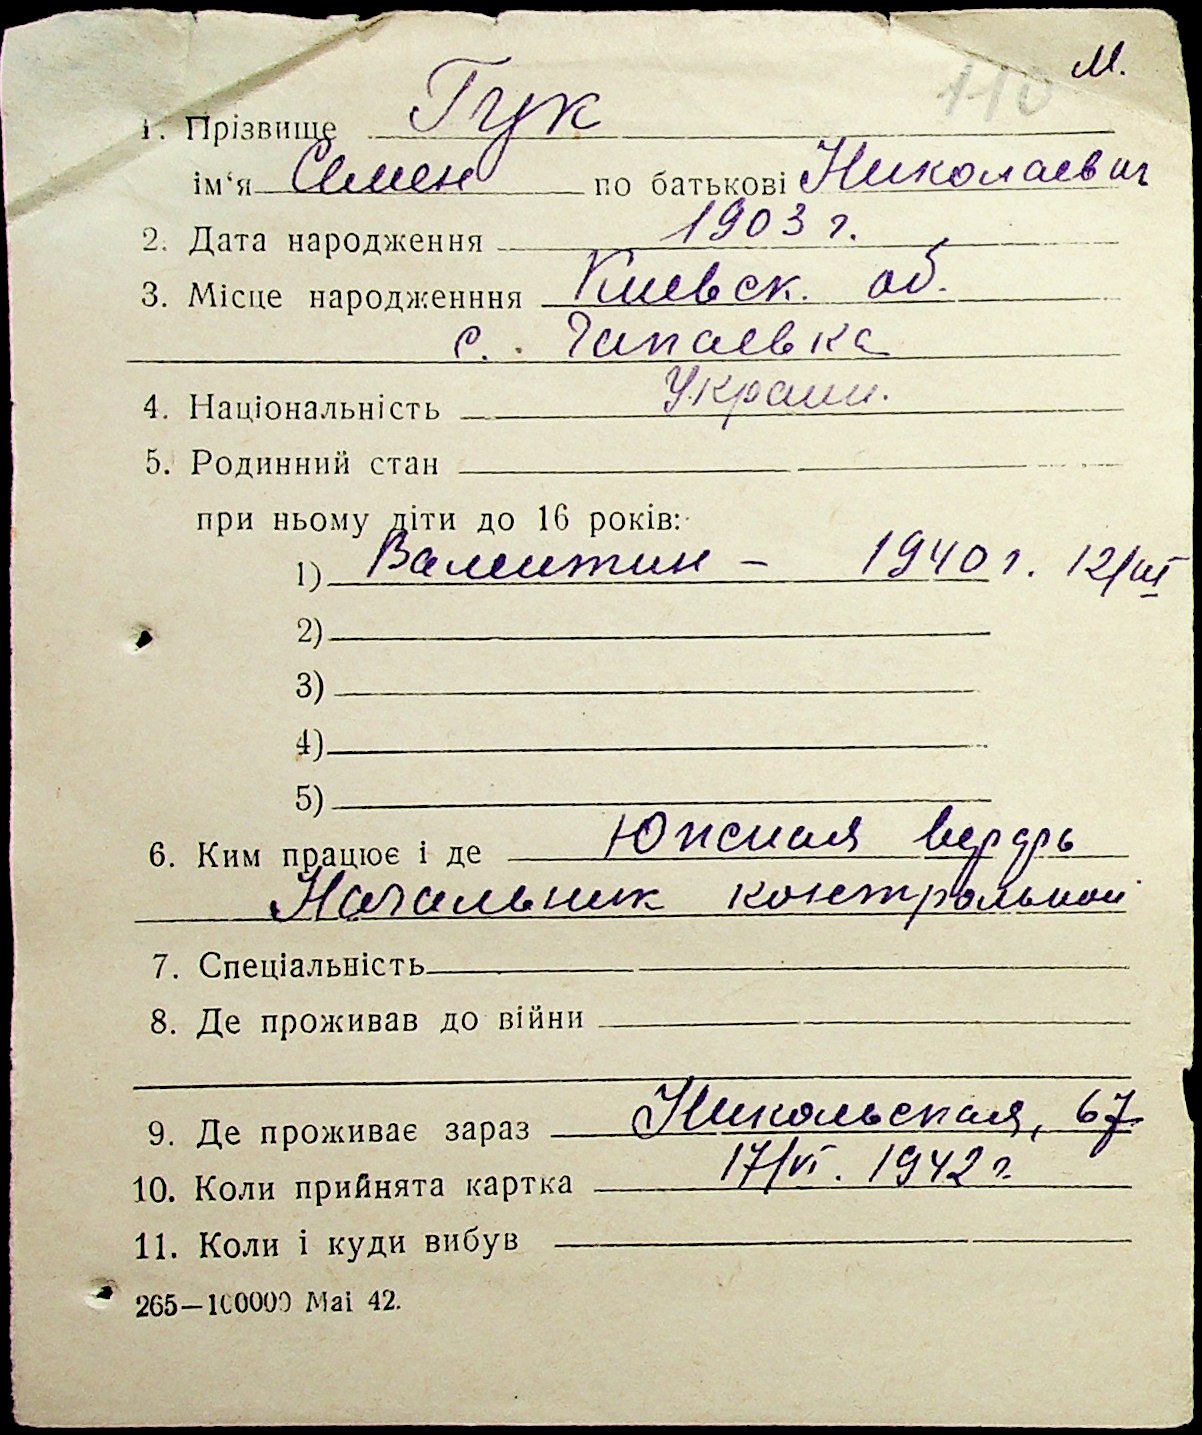 110 М.
1. Прізвище Гук
ім‘я Семен по батькові Николаевич
2. Дата народження 1903 г.
3. Місце народженння Киевск. об.
с. Чапаевка
4. Національність Украин.
5. Родинний стан
при ньому діти до 16 років:
1) Валентин – 1940 г. 12/III
2)
3)
4)
5)
6. Ким працює і де Южная верфь
Начальник контрольной
7. Спеціальність
8. Де проживав до війни
9. Де проживає зараз Никольская, 67
10. Коли прийнята картка 17/VI. 1942 г.
11. Коли і куди вибув
265—100000 Маі 42.